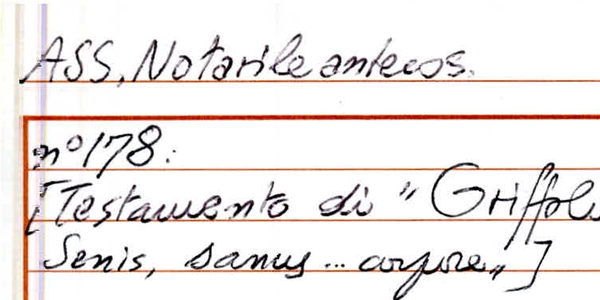 ASS, Notarile antecos.
n° 178:
[Testamento di "Griffolu
Senis, sanus... corpore"]